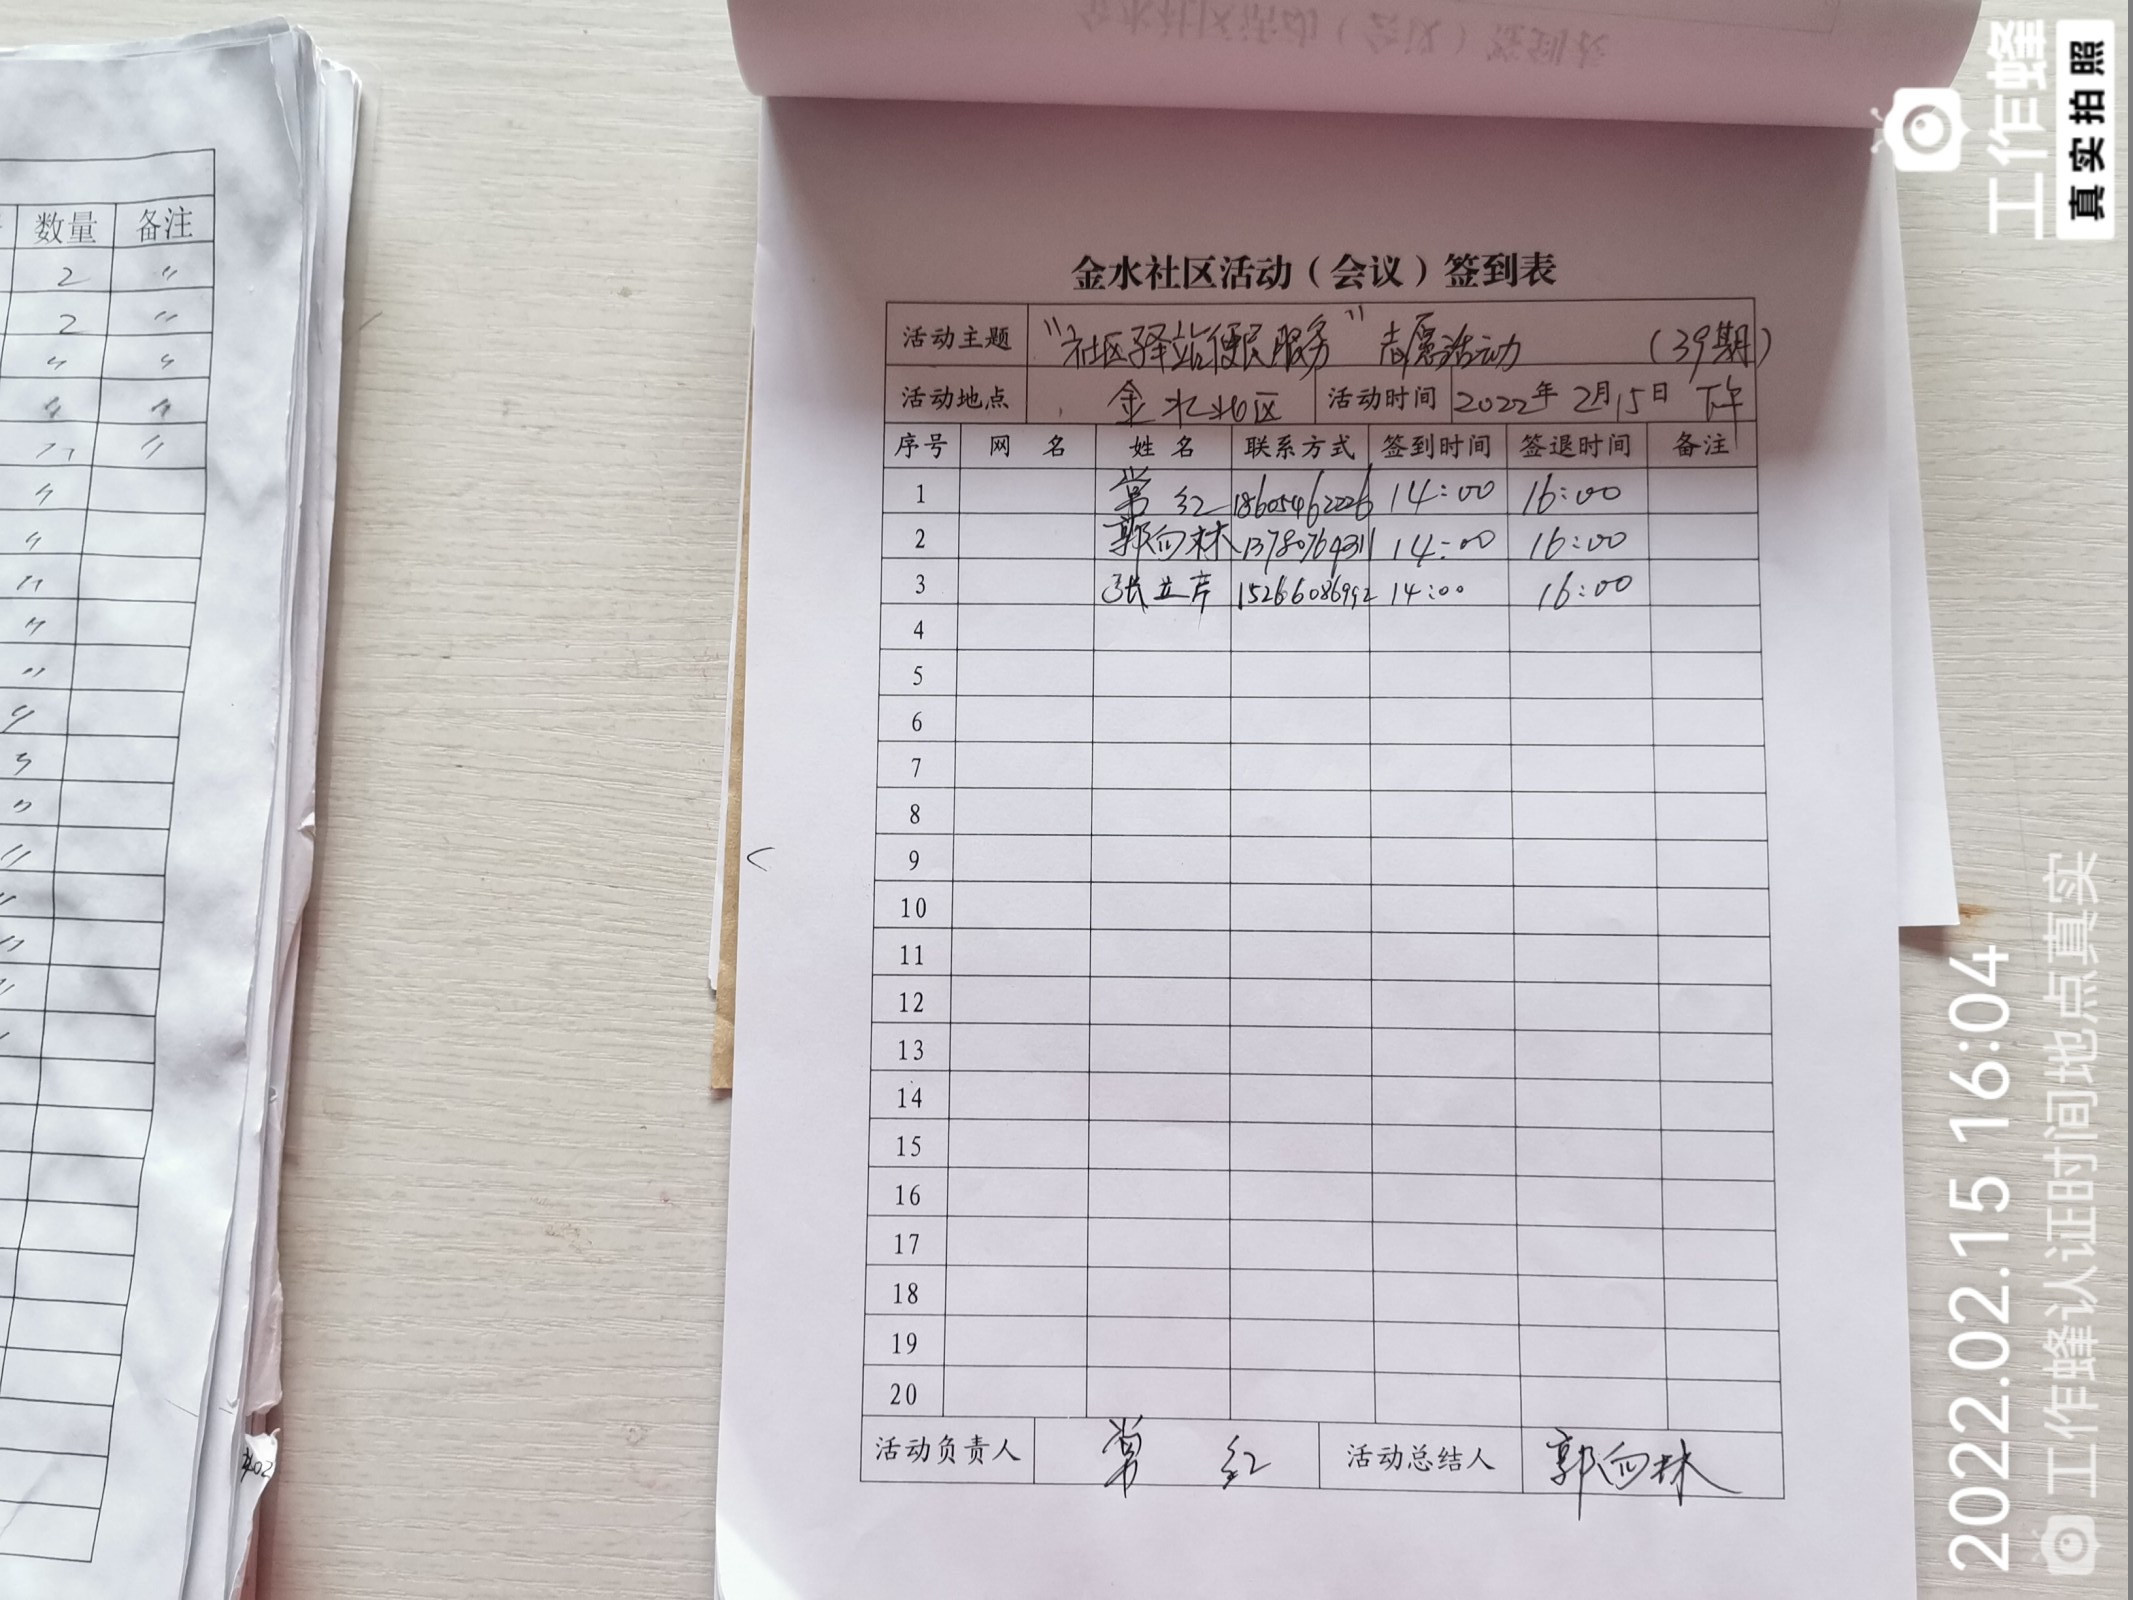 数量 备注
2 〃
2 〃
金水社区活动（会议）签到表
活动主题 “社区驿站便民服务”志愿活动 （39期）
活动地点 金水社区 活动时间 2022年2月15日 下午
序号 网 名 姓 名 联系方式 签到时间 签退时间 备注
1 常 红 18605462226 14:00 16:00
2 郭向林 13780764311 14:00 16:00
3 张 15266086992 14:00 16:00
4
5
6
7
8
9
10
11
12
13
14
15
16
17
18
19
20
活动负责人 常 红 活动总结人 郭向林
工作蜂
真实拍照
2022.02.15 16:04
工作蜂认证时间地点真实